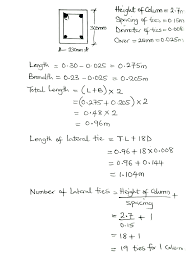 Height of Column = 2.7m
Spacing of ties = 0.15m
Diameter of ties = 0.008
Cover = 25mm = 0.025m
300mm
230mm
Length = 0.30 - 0.025 = 0.275m
Breadth = 0.23 - 0.025 = 0.205m
Total Length = (L+B) × 2
= (0.275 + 0.205) × 2
= 0.48 × 2
= 0.96m
Length of lateral tie = TL + 18D
= 0.96 + 18 × 0.008
= 0.96 + 0.144
= 1.104m
Number of lateral ties = Height of Column + 1
Spacing
= 2.7 + 1
0.15
= 18 + 1
= 19 ties for 1 Column